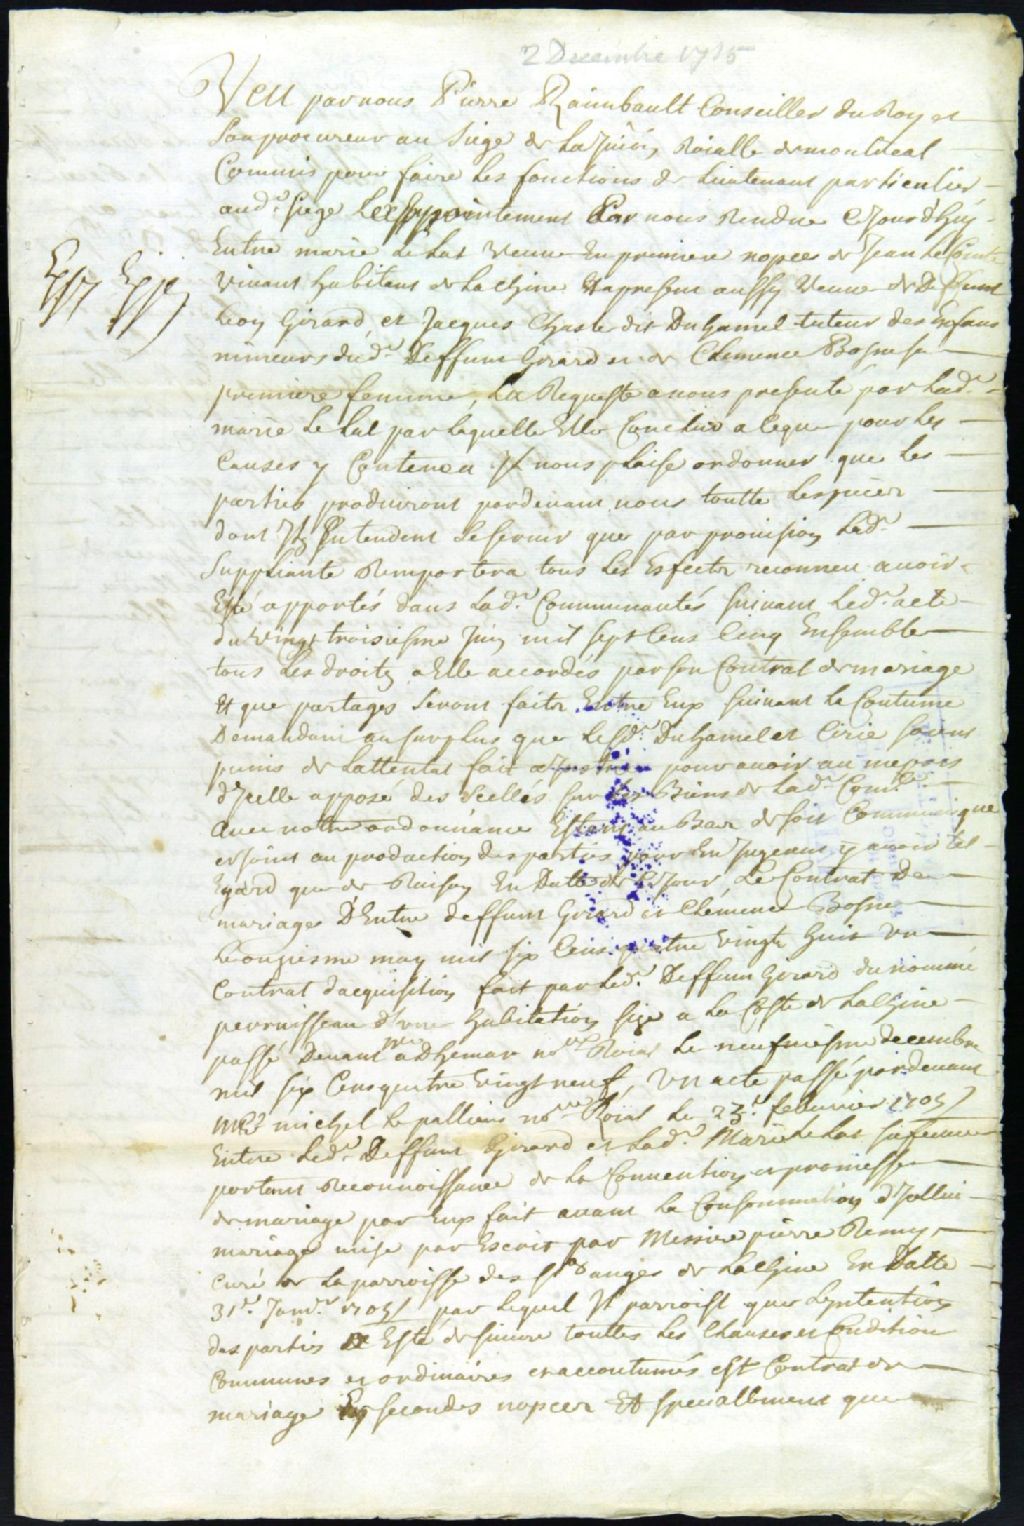 2 Decembre 1715
Veu par nous Pierre Raimbault Conseiller du Roy et
Son procureur au Siege de La Juridn Roialle de montreal
Commis pour faire Les fonctions de Lieutenant particulier
aud. Siege L'appointement Par nous Rendue Cejourd'huy
Entre marie Le Lat Veuve En premiere nopces de Jean Le Comte
vivant habitant de La chine Et a present aussy Veuve de Deffunt
Leon Girard, et Jacques Chasle dit Duhamel tuteur des Enfans
mineurs dud. Deffunt Girard et de Clemence Bosne sa
premiere femme, La Requeste a nous presenté par Lad.
marie Le Lat par Laquelle Elle Conclud a ceque pour Les
Causes y Contenu Il nous plaise ordonner que Les
parties produiront pardevant nous toutte Les pieces
dont Ils Entendent Se servir que par provision Lad.
Suppliante Remportera tous Les Effects reconneu avoir
Esté apportés dans Lad. Communautés suivant Led. acte
du vingt troisiesme Juin mil sept Cens Cinq Ensemble
tous Les droits a Elle accordés par son Contrat de mariage
Et que partages Seront faits Entre Eux suivant La Coutume
Demandant au surplus que Led. Duhamel et Cirie soient
punis de Lattentat fait pour avoir au mepris
d'Icelle apposé des scellés sur Les Biens de Lad. Comté
Avec notre ordonnance Estant au Bas de soit Communique
et joint au production des parties pour En Jugeant y avoir tel
Egard que de Raison En Datte de ce Jour Le Contrat De
mariage D'Entre deffunt Girard et Clémence Bosne
Le onziesme may mil six Cens quatre vingt huit un
Contrat dacquisition fait par Led. Deffunt Girard du nommé
perruisseau d'une habitation size a La Coste de La Chine
passé Devant me adhemar nore Roial Le neufiesme decembre
mil six Cens quatre vingt neuf, un acte passé pardevant
Me michel Le pallieur nore Roial Le 23e febvrier 1705
Entre Led. Deffunt Girard et Lad. Marie Le Lat sa femme
portant Reconnoissance de La Convention et promesse
de mariage par Eux fait avant La Consommation d'Icelluy
mariage mise par Escrit par Messire pierre Remy
curé de La parroisse des sts anges de La Chine En Datte
31e Janvr 1705 par Lequel Il parroist que Lintention
des partis a Esté de suivre touttes Les Clauses et Condition
Communes et ordinaires et accoutumés est Contrat de
mariage En secondes nopces Et specialement que